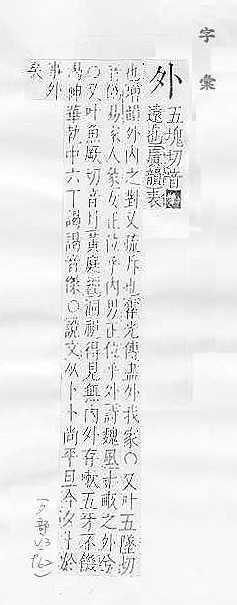 字彙
外
五塊切音
遠也廣韻表
也增韻外內之對又疏斥也霍光傳盡外我家〇又叶五墜切
音偽易家人彖女正位乎內男正位乎外詩魏風十畝之外兮
〇又叶魚厥切音月黃庭經洞視得見無內外存嗽五牙不饑
渴神華執巾六丁謁謁音傑〇說文从卜卜尚平旦今夕卜於
事外
矣
(夕部